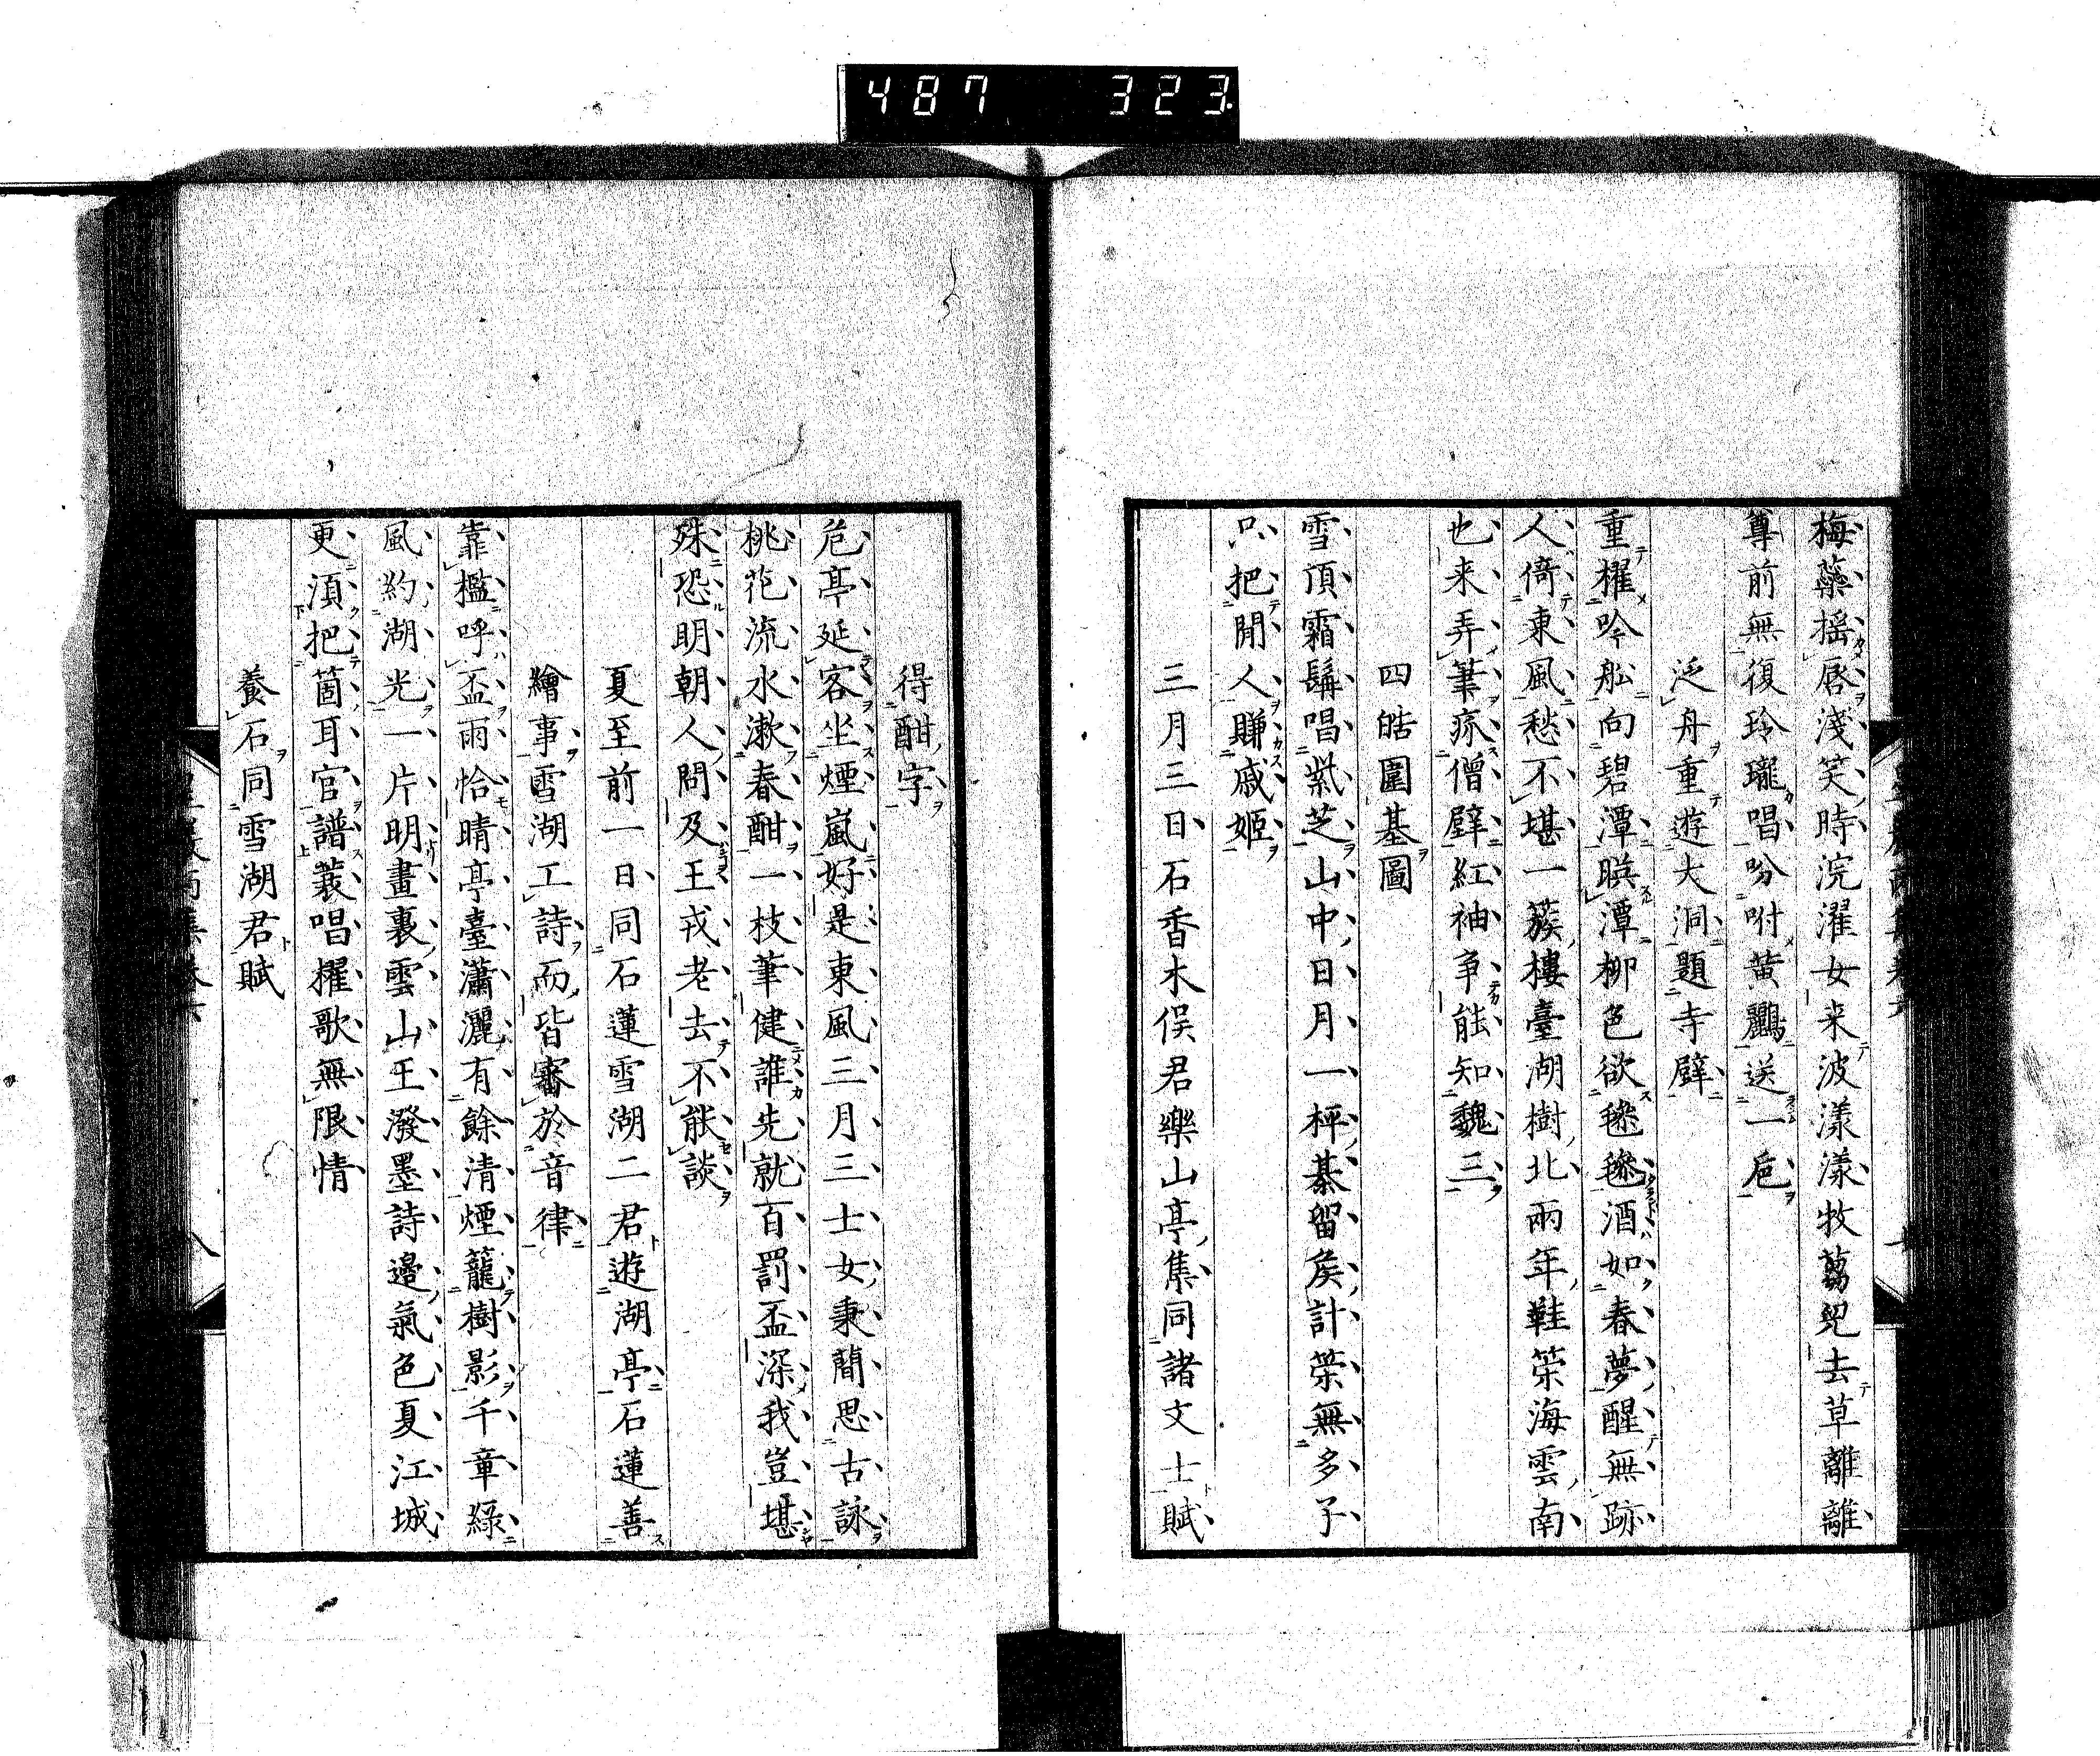 487 323
梅蘂揺唇淺笑時浣濯女来波漾漾牧蒭児去草離離
尊前無復玲瓏唱吩咐黄鸝送一巵
泛舟重遊大洞題寺壁
重櫂吟舩向碧潭暎潭柳色欲毿毿酒如春夢醒無跡
人倚東風愁不堪一簇樓臺湖樹北兩年鞋笠海雲南
也来弄筆疥僧壁紅袖争能知魏三
四皓圍棊圖
雪頂霜髯唱紫芝山中日月一枰棊留矦計策無多子
只把閒人賺戚姬
三月三日石香木俣君樂山亭集同諸文士賦
得酣字
危亭延客坐煙嵐好是東風三月三士女秉蕳思古詠
桃花流水漱春酣一枝筆健誰先就百罰盃深我豈堪
殊恐明朝人問及王戎老去不能談
夏至前一日同石蓮雪湖二君遊湖亭石蓮善
繪事雪湖工詩而皆審於音律
靠檻呼盃雨恰晴亭臺瀟灑有餘清煙籠樹影千章緑
風約湖光一片明畫裏雲山王潑墨詩邊氣色夏江城
更須把箇耳官譜蓑唱櫂歌無限情
養石同雪湖君賦
八